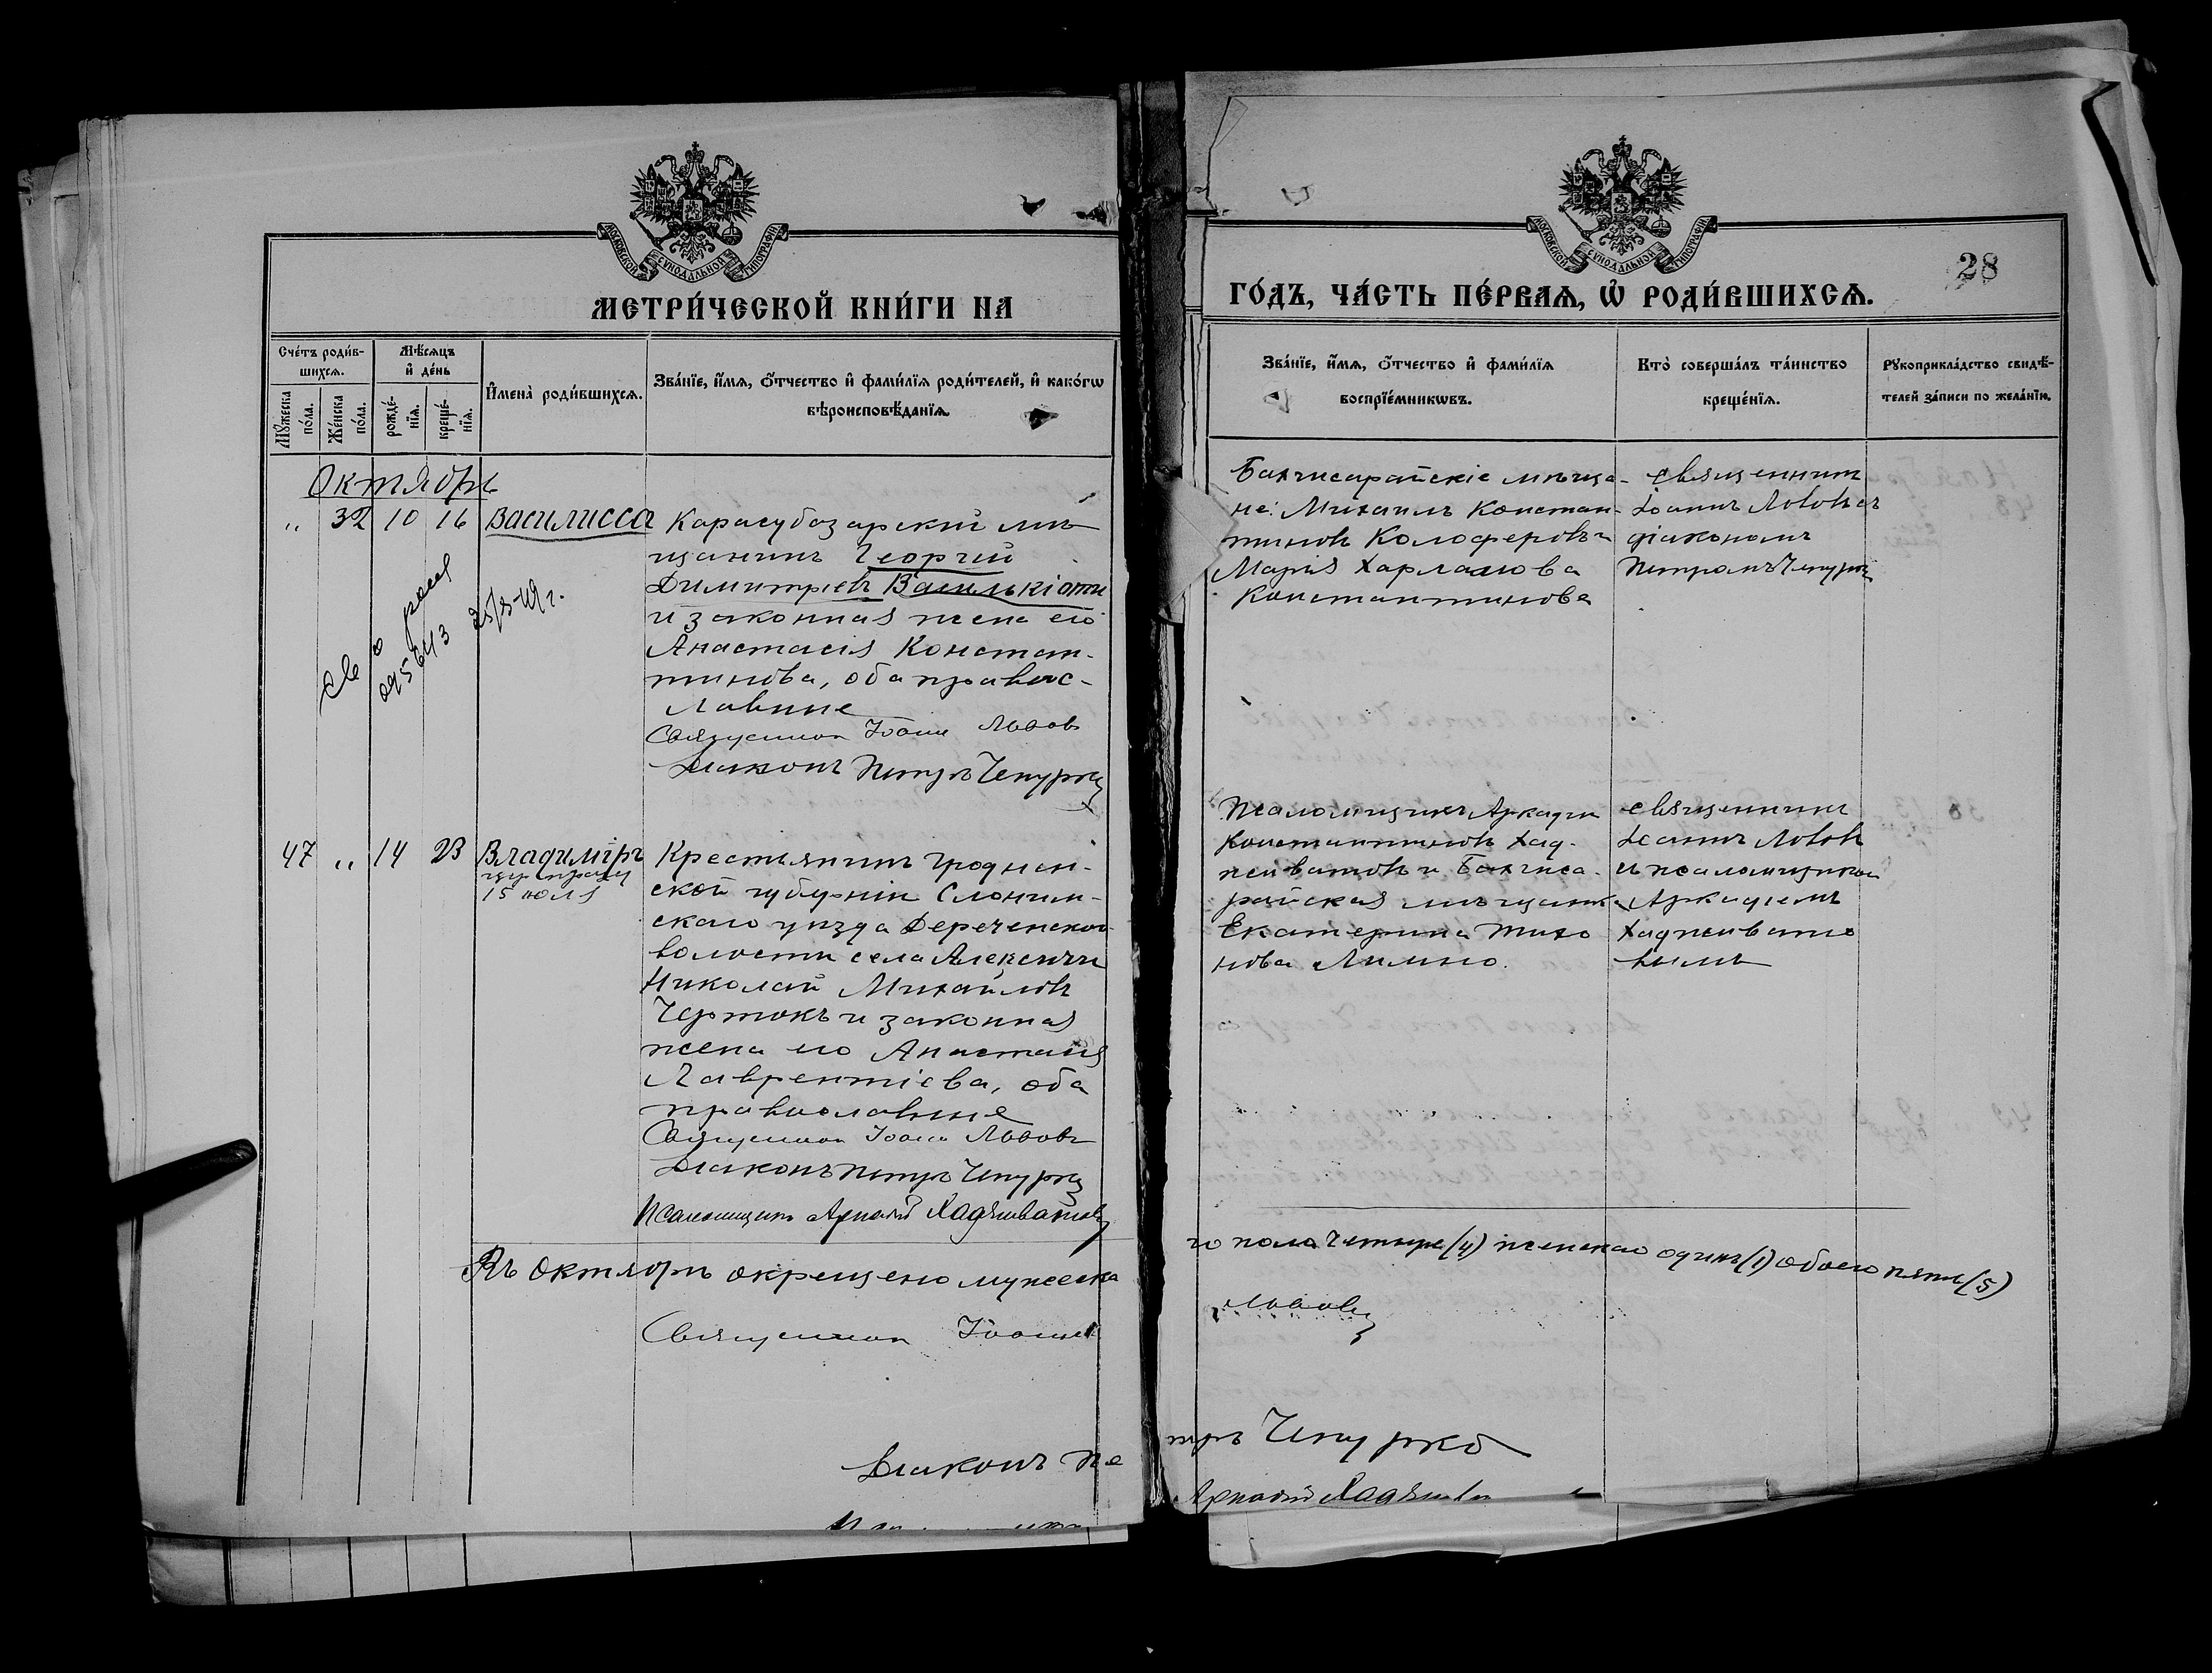 МОСКОВСКОЙ СѴНОДАЛЬНОЙ ТИПОГРАФІИ
МЕТРИ́ЧЕСКОЙ КНИ́ГИ НА
Сче́тъ роди́в-
шихсѧ.
Мꙋ́жеска
по́ла.
Же́нска
по́ла.
Мѣ́сѧцъ
и҆ де́нь
рожде́-
нїѧ.
креще́-
нїѧ.
И҆мена̀ роди́вшихсѧ.
Зва́нїе, и҆́мѧ, ѻ҆́тчество и҆ фами́лїѧ роди́телей, и҆ како́гѡ
вѣроисповѣ́данїѧ.
Октябрь
" 32 10 16 Василисса
Карасубазарскій мѣ-
щанинъ Георгій
Димитріевъ Василькіоти
и законная жена его
Анастасія Констан-
тинова, оба правос-
лавные
Священник Іоанн Львов
Діаконъ Петръ Чепурко
Св о рожд
095643 25/3-49 г.
47 " 14 23 Владиміръ
15 іюля
Крестьянинъ Гроднен-
ской губерніи Слоним-
скаго уѣзда Дереченской
волости села Алексичи
Николай Михайловъ
Чертокъ и законная
жена его Анастасія
Лаврентіева, оба
православные
Священник Іоанн Львовъ
Діаконъ Петръ Чепурко
Псаломщикъ Аркадій Хаджиивановъ
Въ Октябрѣ окрещено мужеска
Священник Іоанн
Діаконъ Пе
МОСКОВСКОЙ СѴНОДАЛЬНОЙ ТИПОГРАФІИ
28
ГО́ДЪ, ЧА́СТЬ ПЕ́РВАѦ, Ѡ҆ РОДИ́ВШИХСѦ.
Зва́нїе, и҆́мѧ, ѻ҆́тчество и҆ фами́лїѧ
воспрїе́мникѡвъ.
Кто̀ соверша́лъ та́инство
креще́нїѧ.
Рꙋкоприкла́дство свидѣ́-
телей за́писи по жела́нїю.
Бахчисарайскіе мѣща-
не: Михаилъ Констан-
тиновъ Колоферовъ и
Марія Харламова
Константинова
Священник
Іоаннъ Львовъ съ
діакономъ
Петромъ Чепурко
Псаломщикъ Аркадій
Константиновъ Хад-
жиивановъ и Бахчиса-
райская мѣщанка
Екатерина Тихо
нова Лимно.
Священникъ
Іоаннъ Львовъ
и псаломщиком
Аркадіемъ
Хаджиивано
вымъ
го пола четыре (4) женскаго одинъ (1) обоего пять (5)
Львовъ
тръ Чепурко
Аркадій Хаджиив